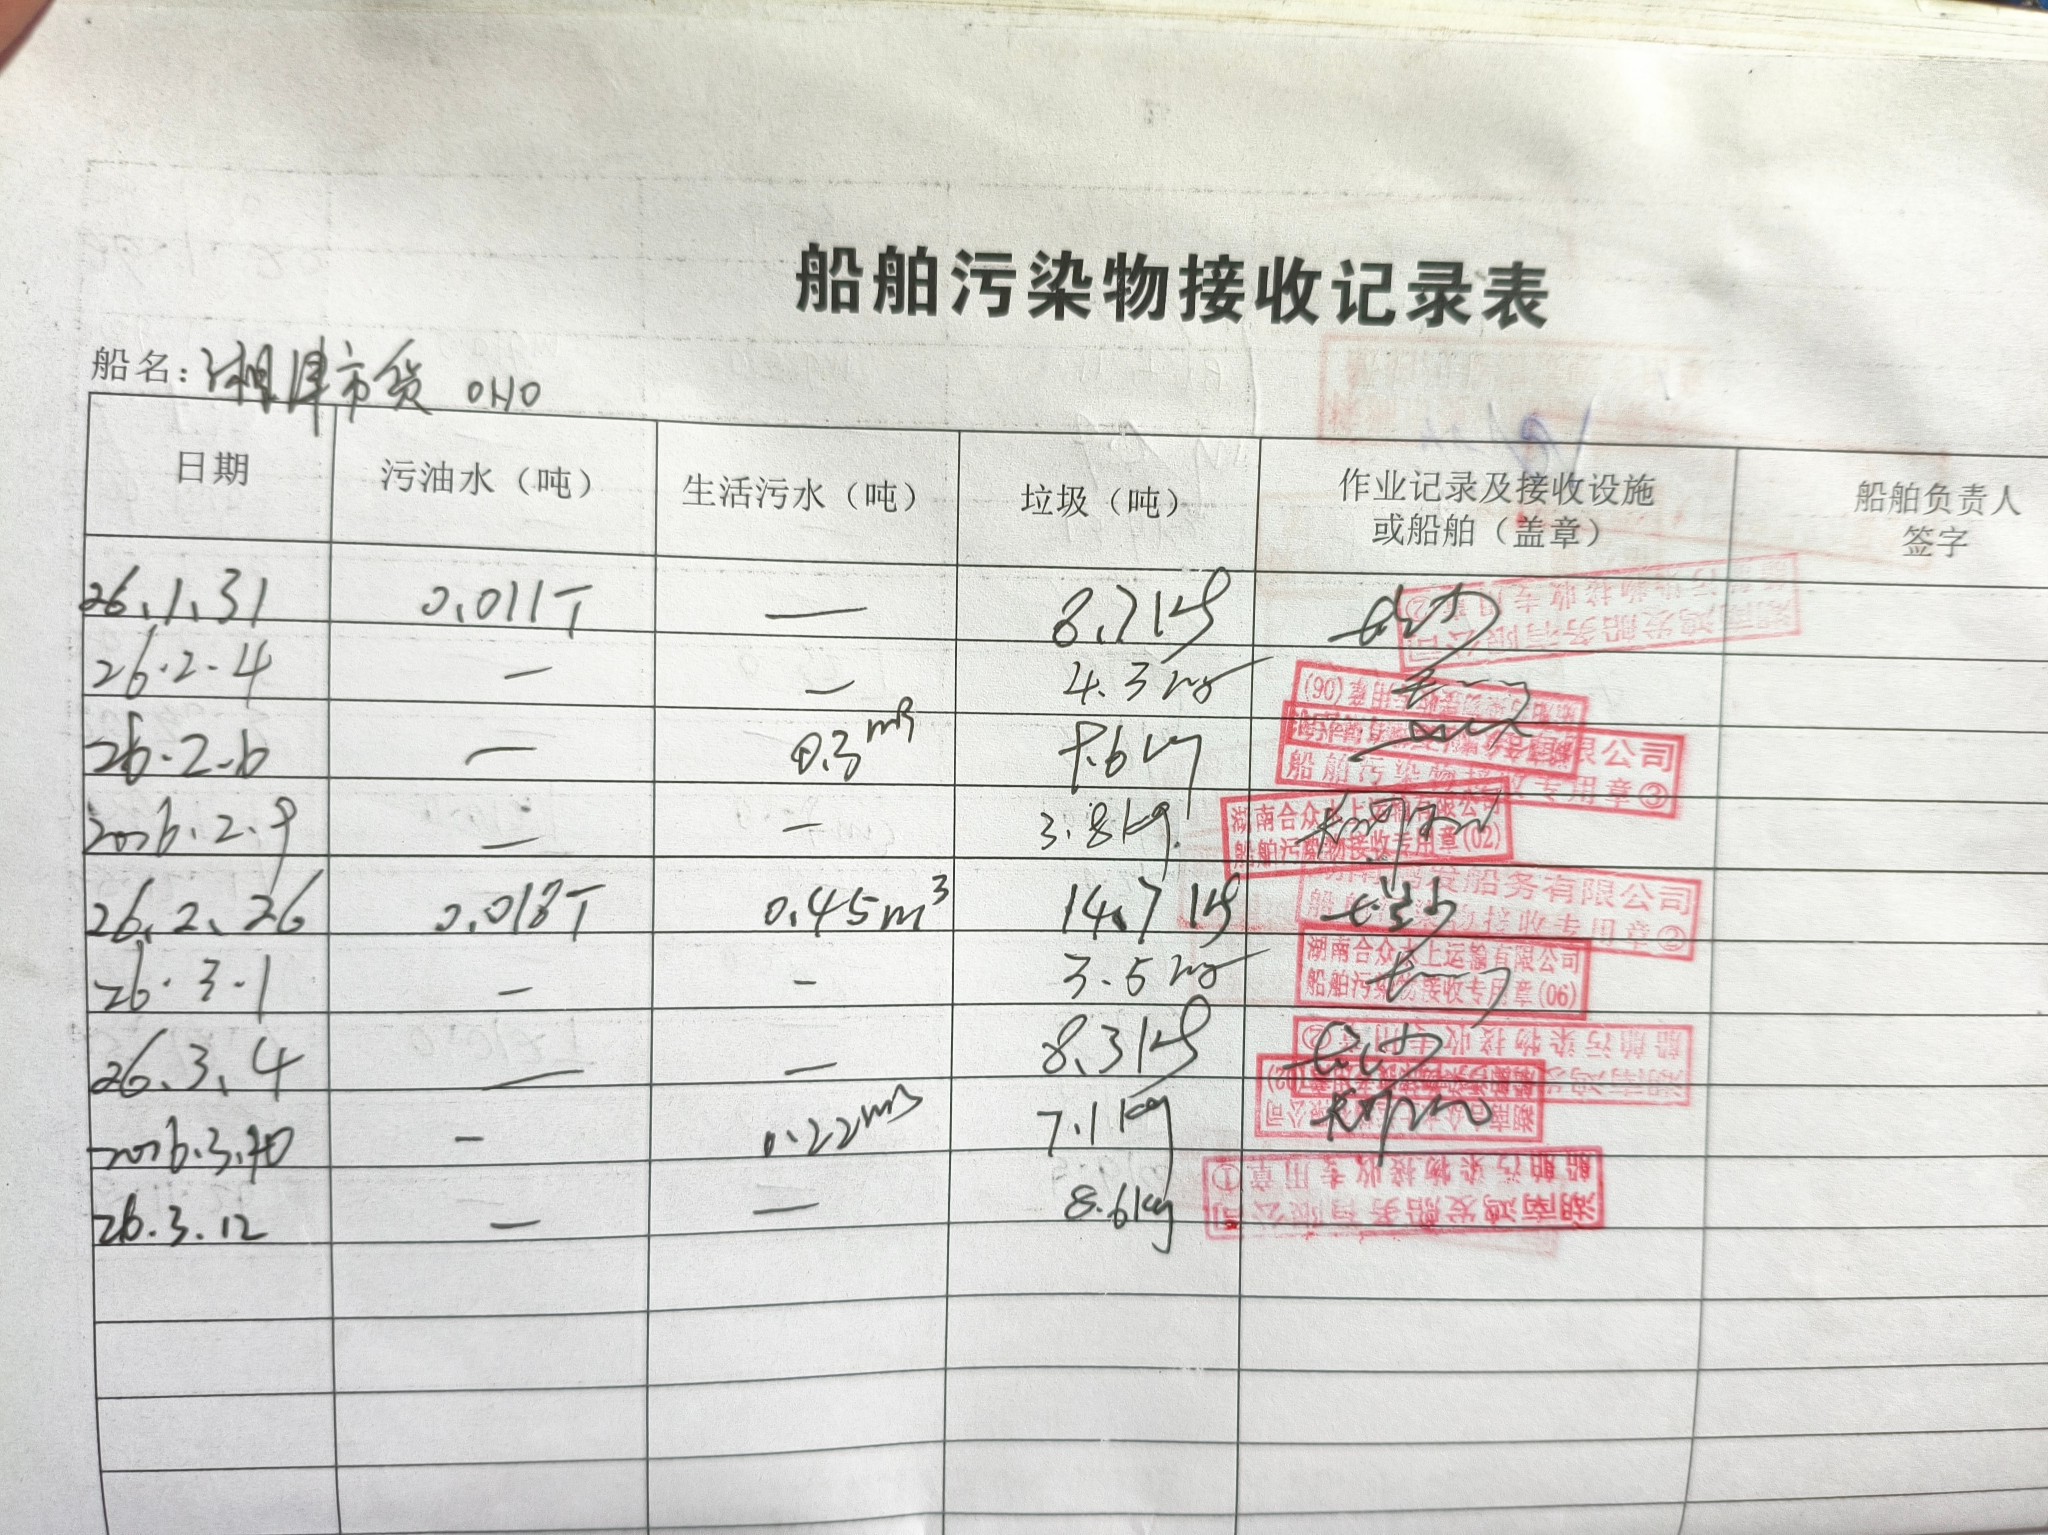 船舶污染物接收记录表
船名：湘津市货 0110
日期 污油水（吨） 生活污水（吨） 垃圾（吨） 作业记录及接收设施或船舶（盖章） 船舶负责人签字
26.1.31 0.011T — 8.7kg
湖南鸿发船务有限公司
船舶污染物接收专用章②
26.2.4 — — 4.3kg
26.2.6 — 0.3m3 9.6kg
限公司
船舶污染物接收专用章③
2026.2.9 — — 3.8kg
湖南合众水上运输有限公司
船舶污染物接收专用章(02)
26.2.26 0.018T 0.45m³ 14.7kg
发船务有限公司
接收专用章②
26.3.1 — — 3.5kg
湖南合众水上运输有限公司
船舶污染物接收专用章(06)
26.3.4 — — 8.3kg
船舶污染物接收专用章②
2026.3.10 — 0.22m3 7.1kg
26.3.12 — — 8.6kg
湖南鸿发船务有限公司
船舶污染物接收专用章①